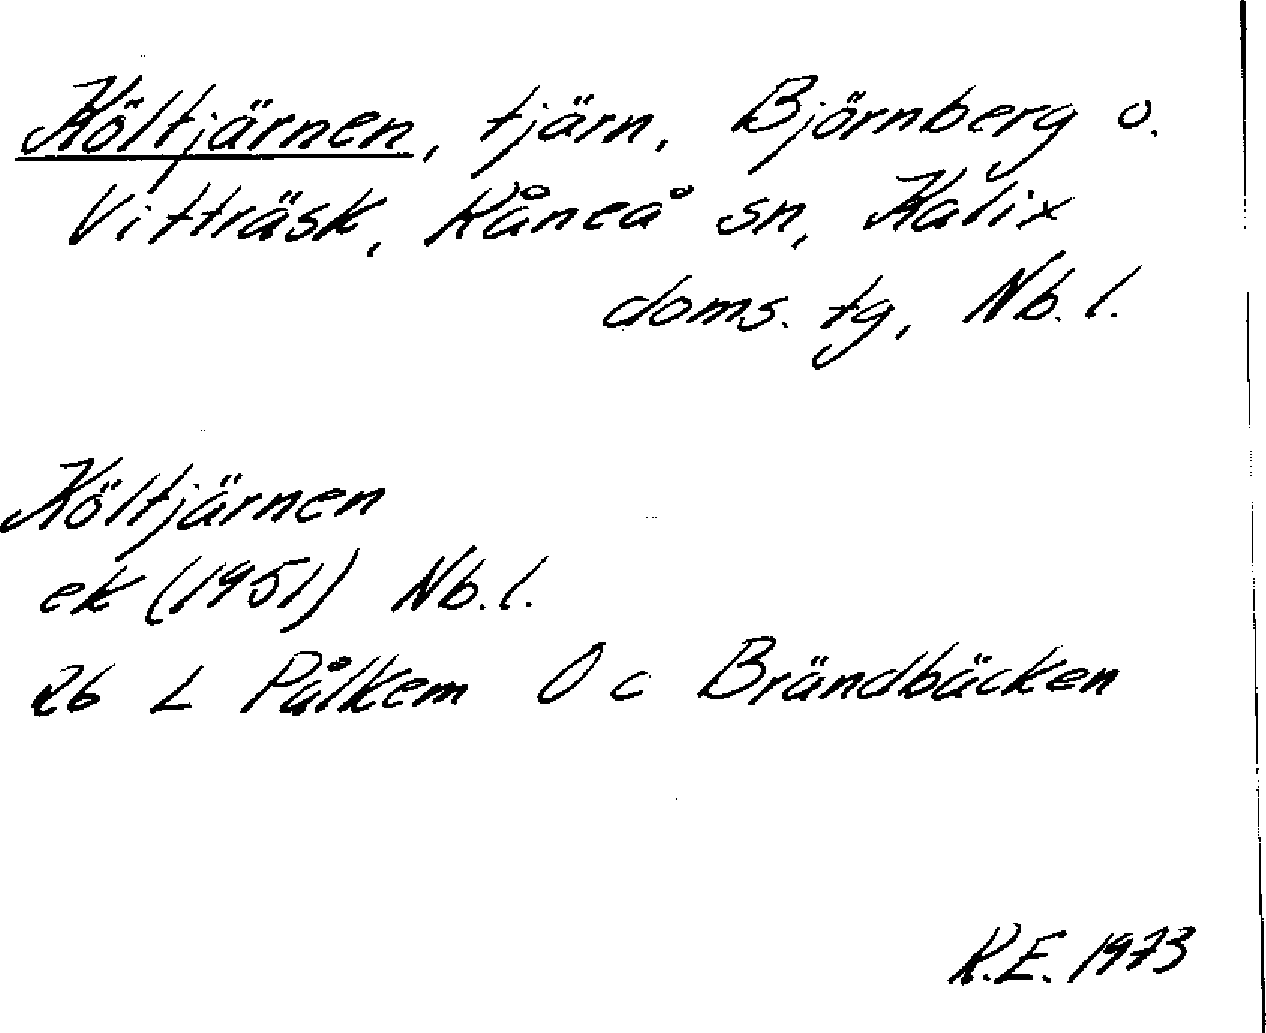 Költjärnen, tjärn, Björnberg o.
Vitträsk, Råneå sn, Kalix
doms. tg, Nb. l.
Költjärnen
ek (1951) Nb. l.
26 L Pålkem O c Brändbäcken
R.E. 1973